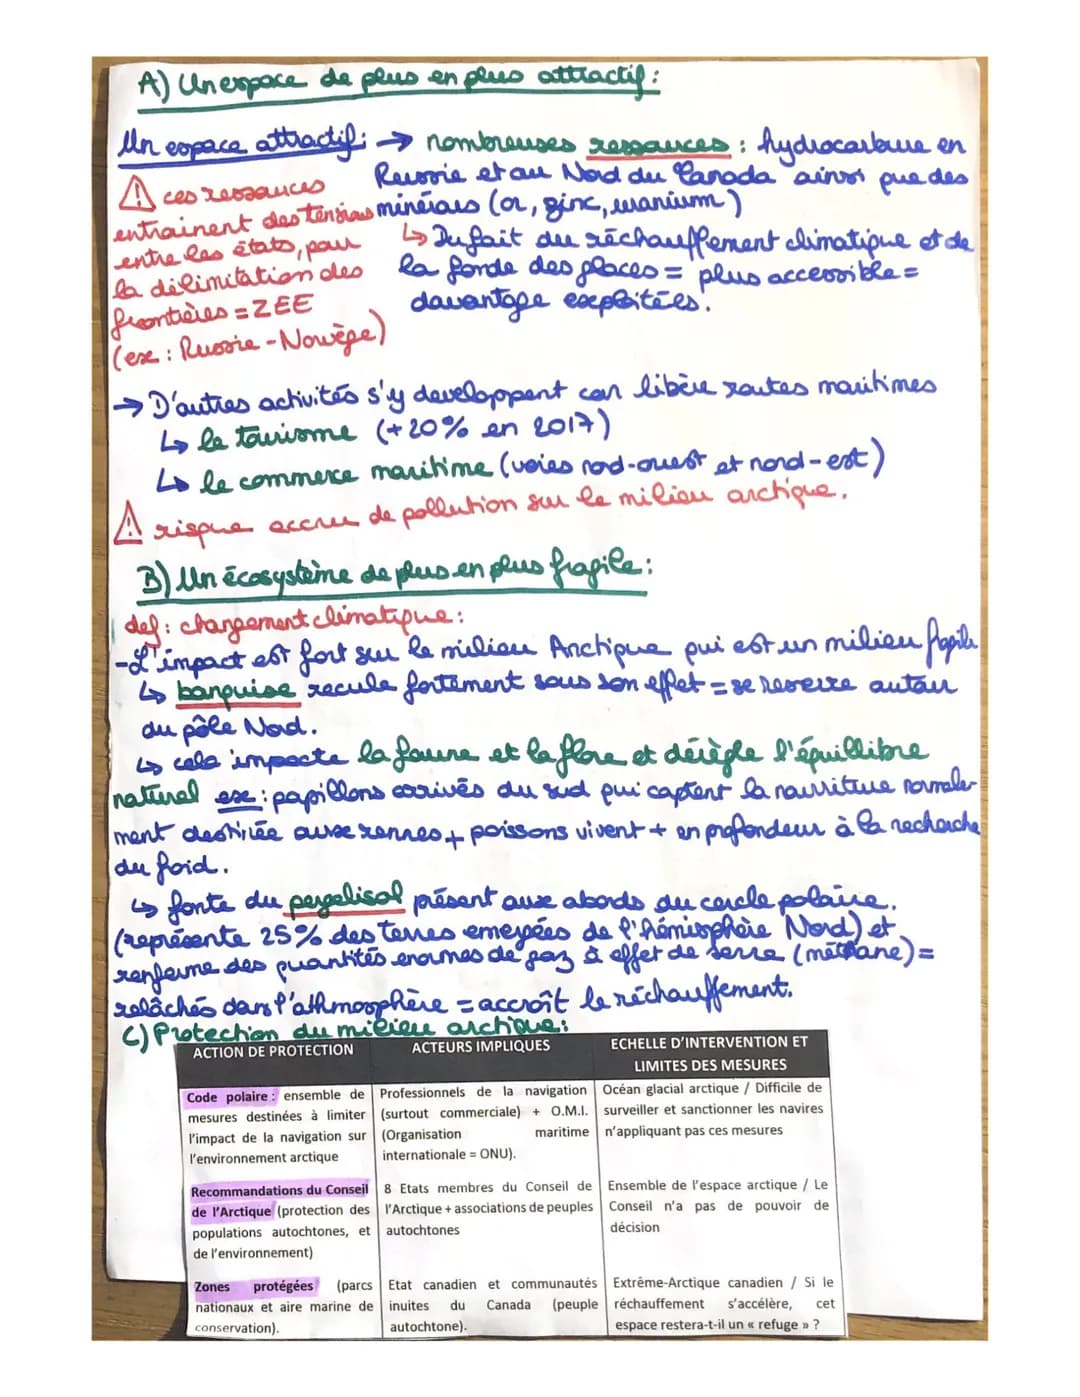 A) Un espace de plus en plus atttractif :
Un espace attractif : → nombreuses ressources : hydrocarbure en
Russie et au Nord du Canada ainsi que des
minérais (or, zinc, uranium)
↳ Du fait du réchauffement climatique et de
la fonde des glaces = plus accessible =
davantage exploitées.
⚠ ces ressources
entrainent des tensions
entre les états, pour
la délimitation des
frontières = ZEE
(ex : Russie - Norvège)
→ D'autres activités s'y developpent car libère routes maritimes
↳ le tourisme (+20% en 2017)
↳ le commerce maritime (voies nord-ouest et nord-est)
⚠ risque accru de pollution sur le milieu arctique.
B) Un écosystème de plus en plus fragile :
def : changement climatique :
- L'impact est fort sur le milieu Arctique qui est un milieu fragile
↳ banquise recule fortement sous son effet = se resserre autour
du pôle Nord.
↳ cela impacte la faune et la flore et dérègle l'équillibre
naturel ex : papillons arrivés du sud qui captent la nourriture normale-
ment destinée aux rennes + poissons vivent + en profondeur à la recherche
du froid.
↳ fonte du pergelisol présent aux abords du cercle polaire.
(représente 25% des terres emergées de l'hémisphère Nord) et
renferme des quantités enormes de gaz à effet de serre (méthane) =
relâchés dans l'athmosphère = accroît le réchauffement.
C) Protection du milieu arctique :
ACTION DE PROTECTION
ACTEURS IMPLIQUES
ECHELLE D'INTERVENTION ET
LIMITES DES MESURES
Code polaire : ensemble de
mesures destinées à limiter
l'impact de la navigation sur
l'environnement arctique
Professionnels de la navigation
(surtout commerciale) + O.M.I.
(Organisation maritime
internationale = ONU).
Océan glacial arctique / Difficile de
surveiller et sanctionner les navires
n'appliquant pas ces mesures
Recommandations du Conseil
de l'Arctique (protection des
populations autochtones, et
de l'environnement)
8 Etats membres du Conseil de
l'Arctique + associations de peuples
autochtones
Ensemble de l'espace arctique / Le
Conseil n'a pas de pouvoir de
décision
Zones protégées (parcs
nationaux et aire marine de
conservation).
Etat canadien et communautés
inuites du Canada (peuple
autochtone).
Extrême-Arctique canadien / Si le
réchauffement s'accélère, cet
espace restera-t-il un « refuge » ?